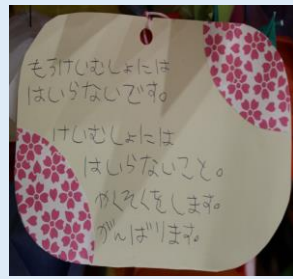 もうけいむしょには
はいらないです。
けいむしょには
はいらないこと。
やくそくをします。
がんばります。